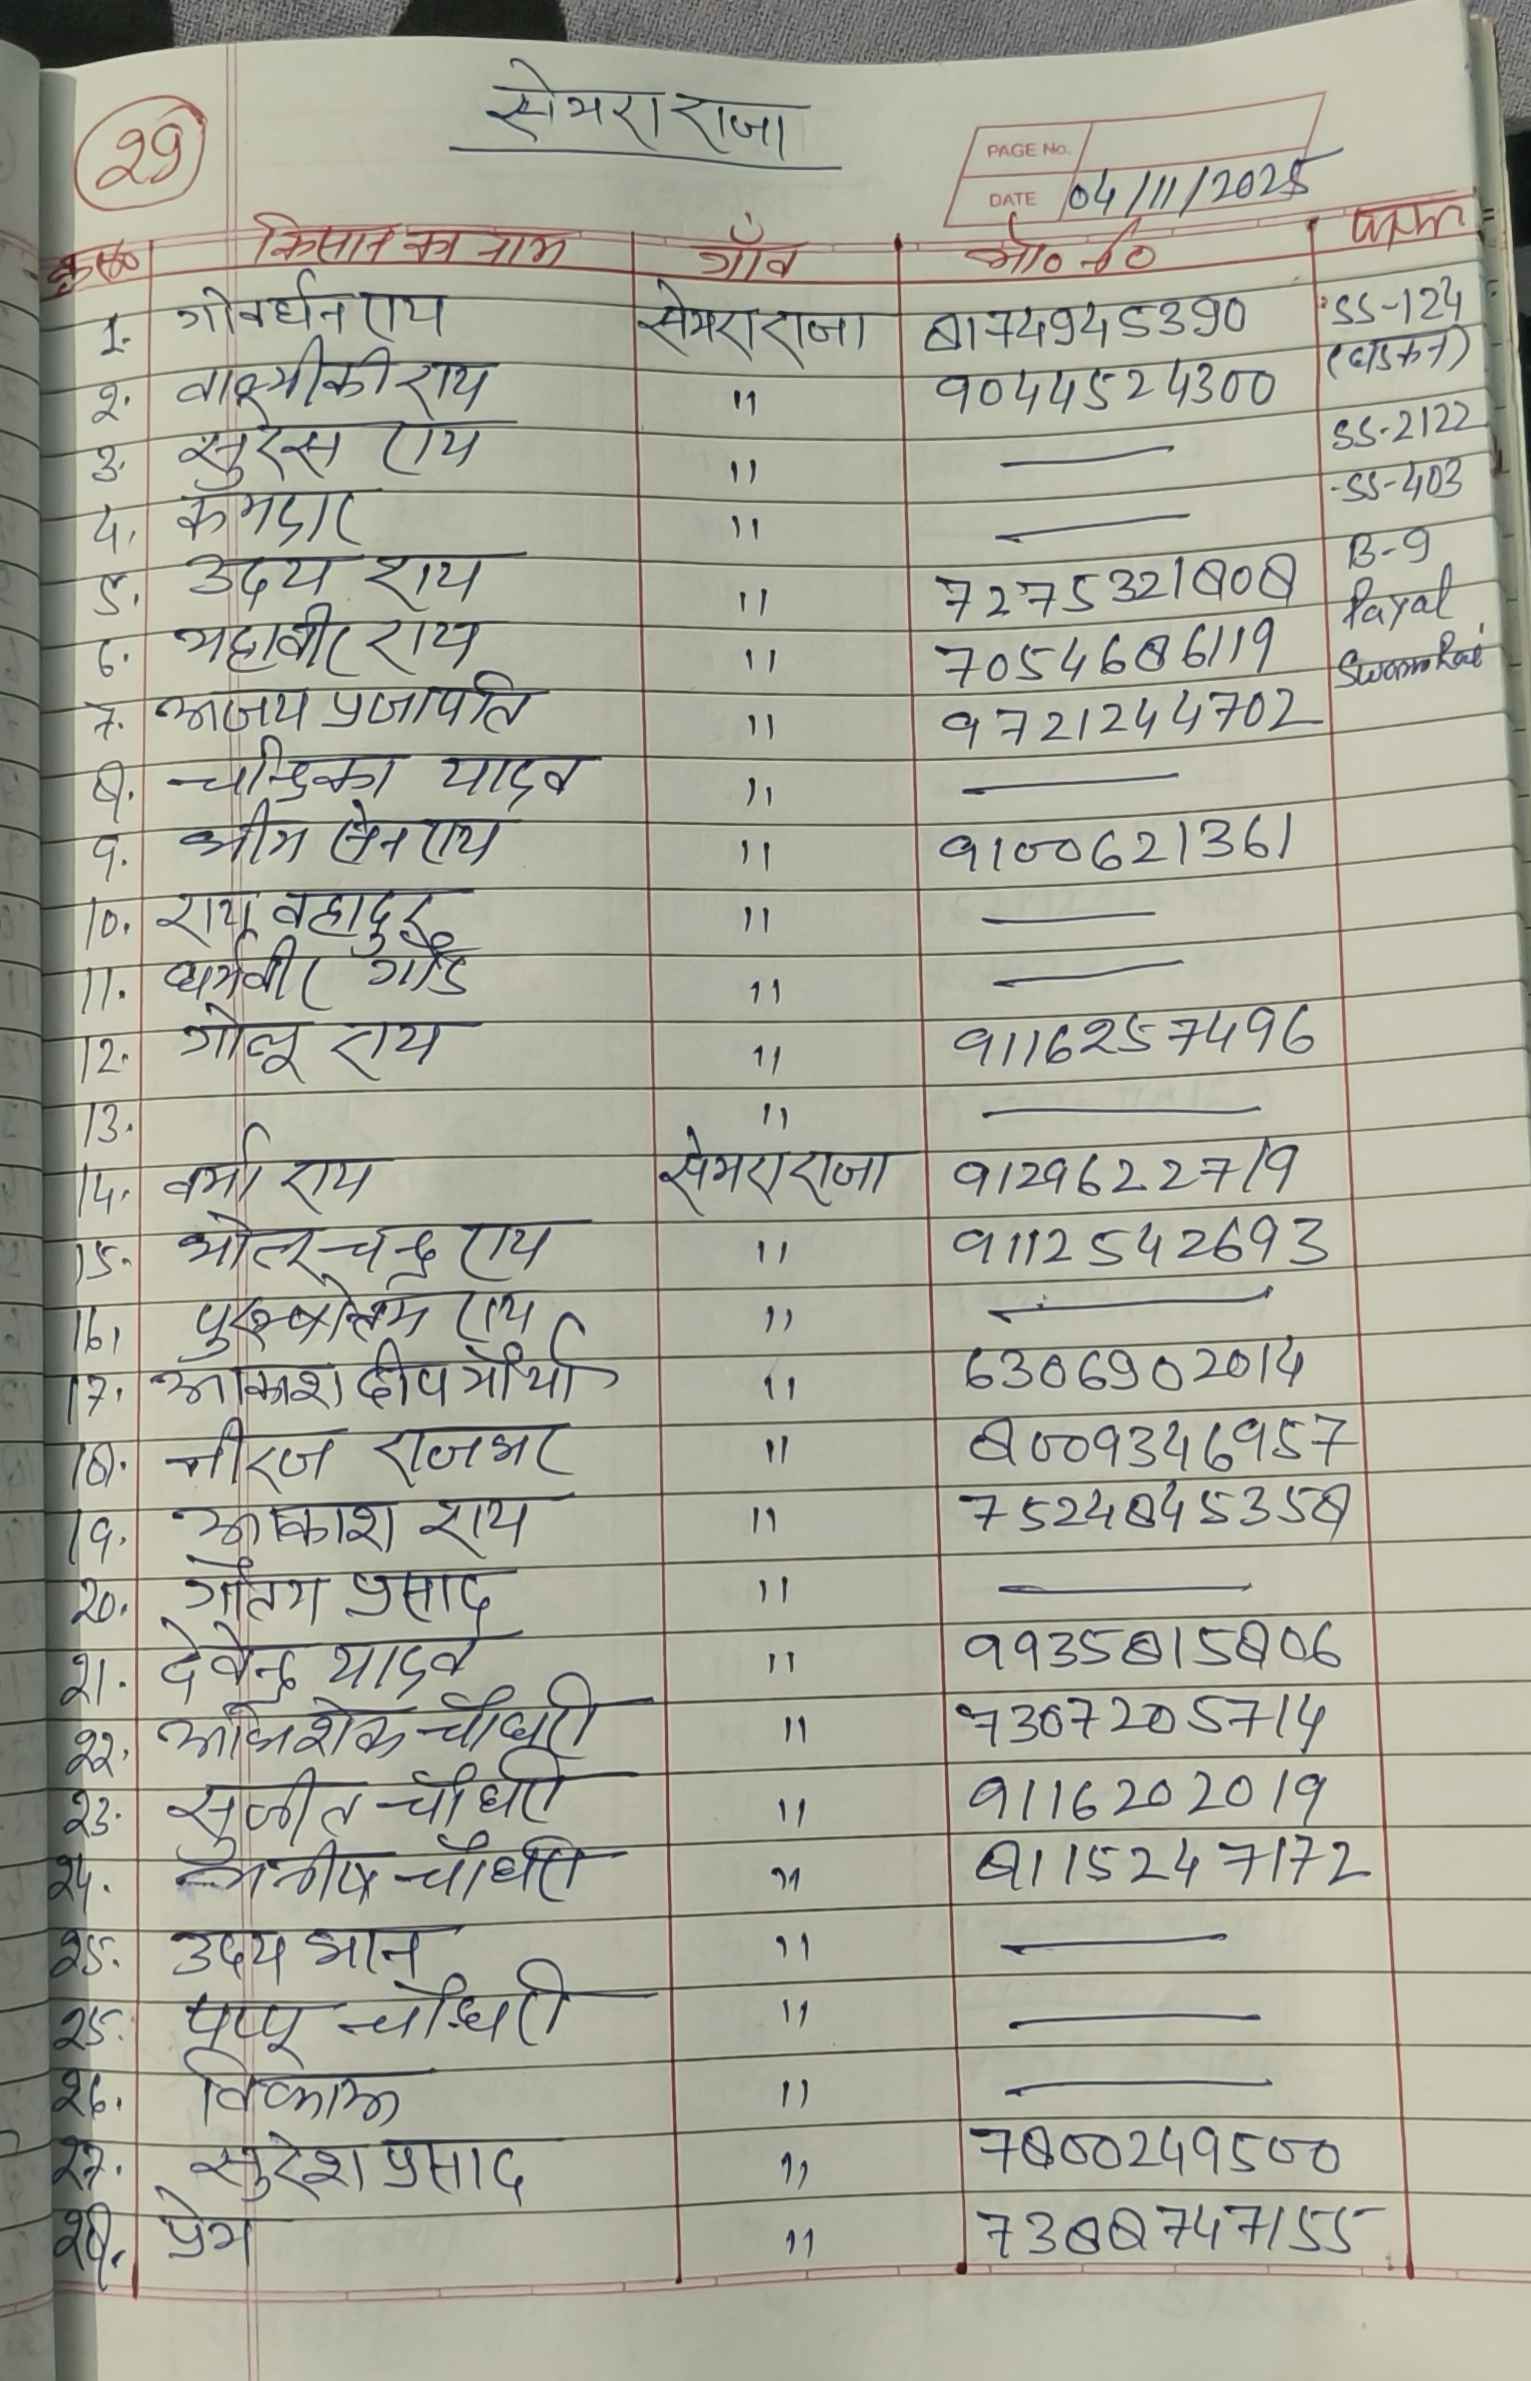 29
सेमरा राजा
PAGE No.
DATE 04/11/2025
क्र०सं० किसान का नाम गाँव मो० नं० फसल
1. गोवर्धन राय सेमरा राजा 8174945390 SS-124
2. वाल्मीकी राय " 9044524300 (धाडकन)
3. सुरेस राय " — SS-2122
4. कमदार " — SS-403
5. उदय राय " 7275321808 B-9
6. महावीर राय " 7054686119 Payal
7. अजय प्रजापति " 9721244702 Swarn Rai
8. चन्द्रिका यादव " —
9. भीम सेन राय " 9100621361
10. रामू वहादुर " —
11. धर्मवीर गौंड " —
12. गोलू राय " 9116257496
13. " —
14. वर्मा राय सेमरा राजा 9129622719
15. मोतीचन्द्र राय " 9112542693
16. पुरूषोत्तम राय " —
17. आकाशदीप मौर्या " 6306902014
18. नीरज राजभर " 8009346957
19. आकाश राय " 7524845358
20. गौतम प्रसाद " —
21. देवेन्द्र यादव " 9935815806
22. अभिशेक चौधरी " 7307205714
23. सुजीत चौधरी " 9116202019
24. मनीष चौधरी " 8115247172
25. उदय भान " —
25. पप्पू चौधरी " —
26. विकाश " —
27. सुरेश प्रसाद " 7800249500
28. प्रेम " 7388747155